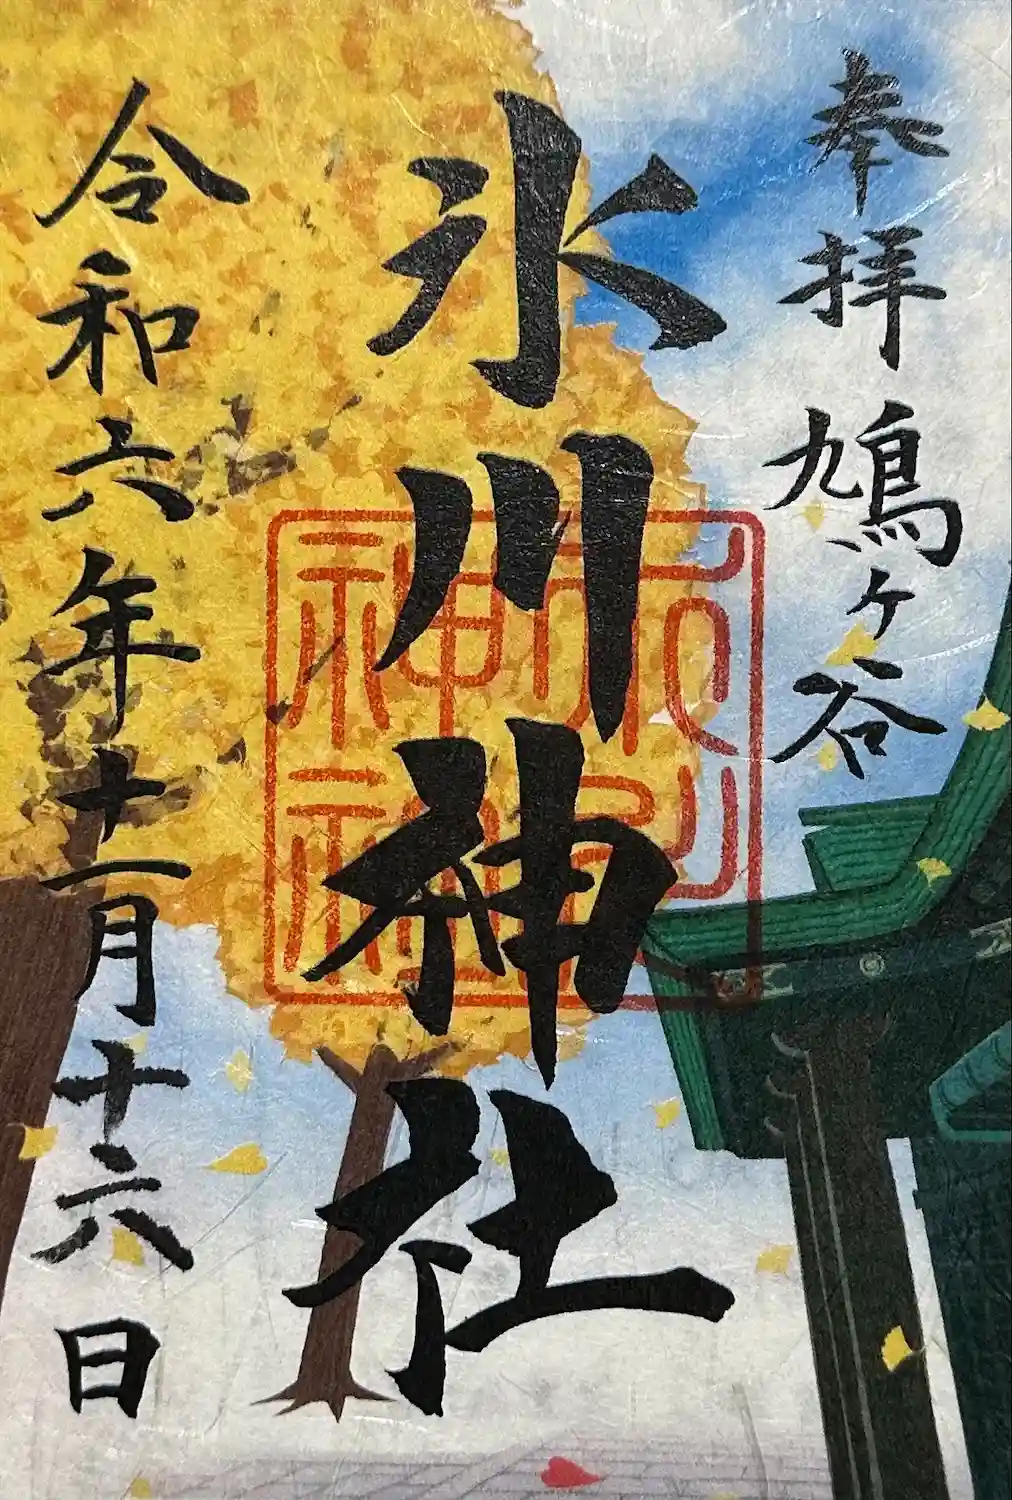 奉拝 鳩ヶ谷
氷川神社
氷川
神社
令和六年十一月十六日